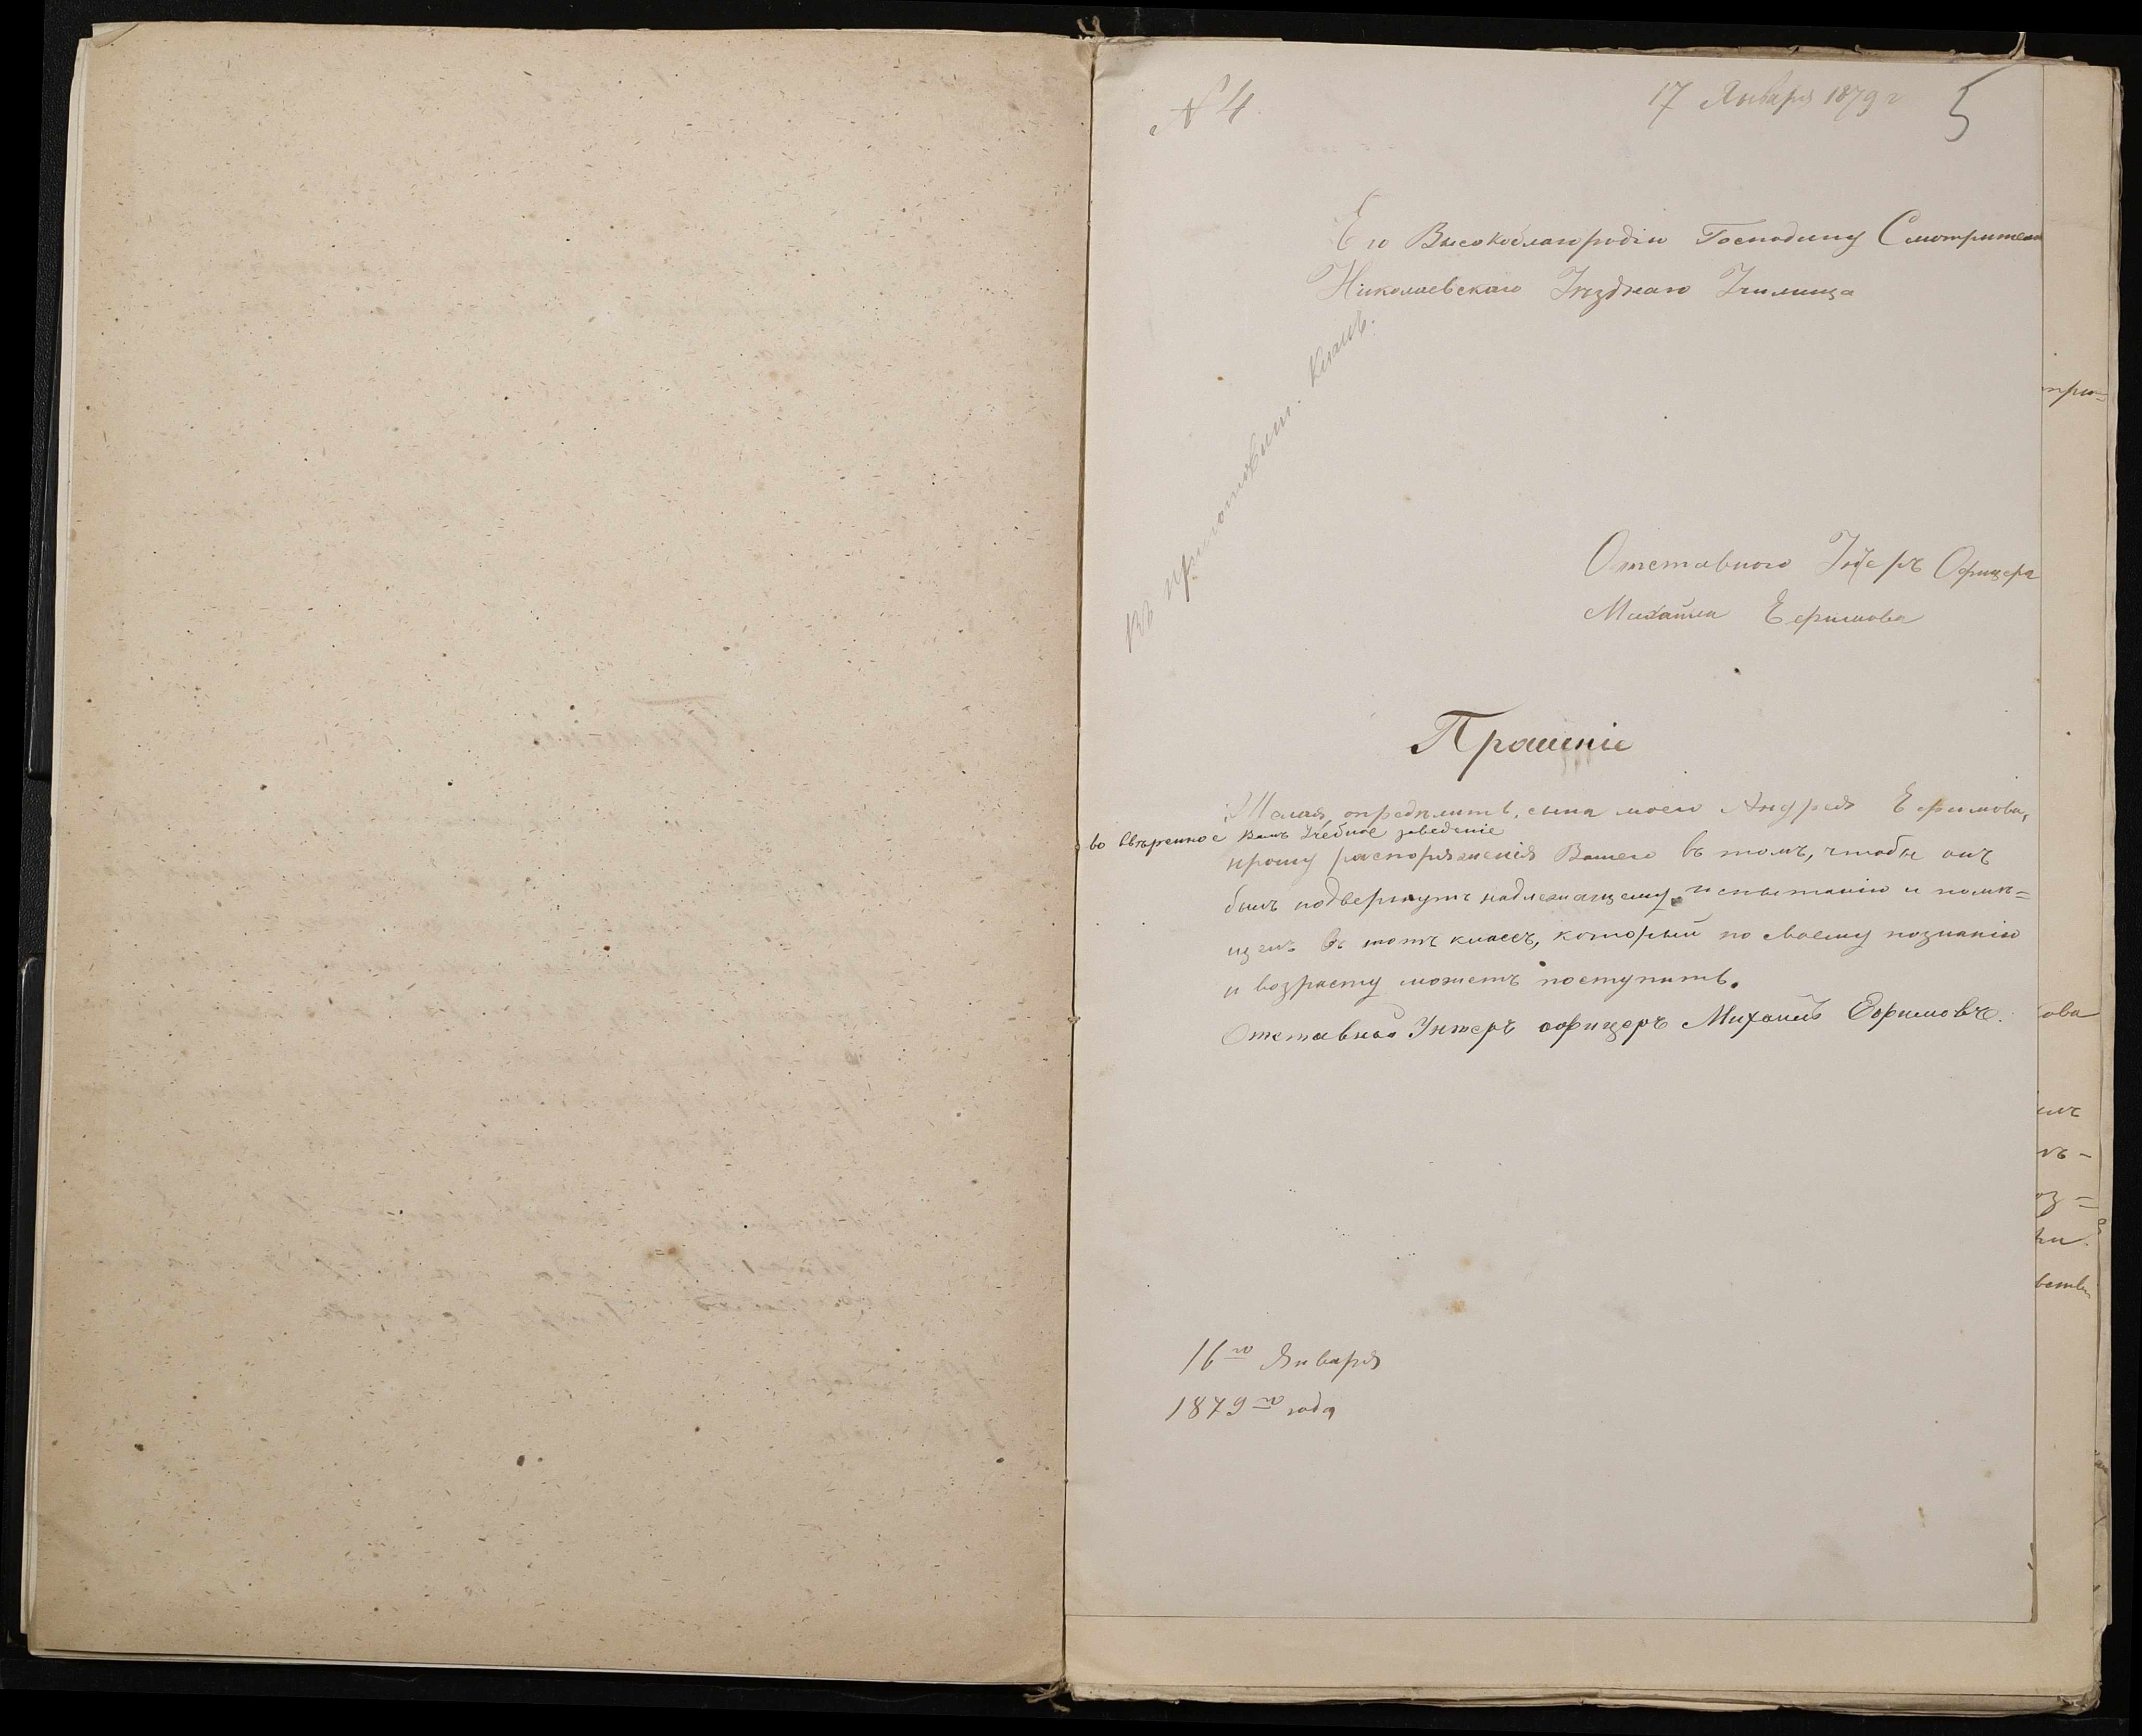 № 4
17 Января 1879 г
5
Его Высокоблагородію Господину Смотрителю
Николаевскаго Уѣзднаго Училища
въ приготовит. классъ.
Отставного Унтеръ Офицера
Михаила Ефимова
Прошеніе
Желая опредѣлить, сына моего Андрея Ефимова,
во ввѣренное Вамъ Учебное заведеніе
прошу распоряженія Вашего въ томъ, чтобы онъ
былъ подвергнутъ надлежащему испытанію и помѣ=
щенъ въ тотъ классъ, который по своему познанію
и возрасту можетъ поступить.
Отставной Унтеръ офицеръ Михаилъ Ефимовъ.
16го Января
1879го года